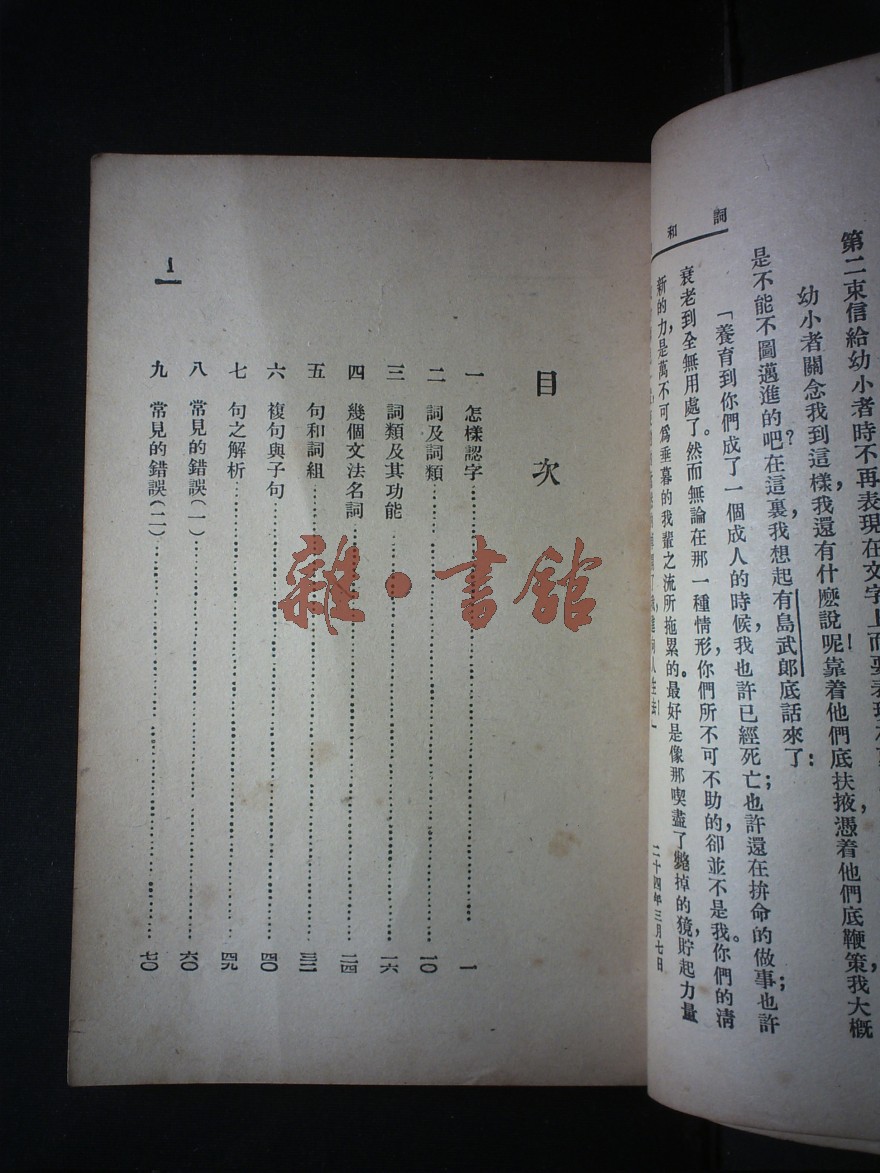 詞和
第二束信給幼小者時不再表現在文字上而要表現
幼小者關念我到這樣，我還有什麽說呢！靠着他們底扶掖，憑着他們底鞭策，我大概
是不能不圖邁進的吧？在這裏，我想起有島武郎底話來了：
「養育到你們成了一個成人的時候，我也許已經死亡；也許還在拚命的做事；也許
衰老到全無用處了。然而無論在那一種情形，你們所不可不助的，卻並不是我。你們的淸
新的力，是萬不可爲垂暮的我輩之流所拖累的。最好是像那喫盡了斃掉的獍，貯起力量
二十四年三月七日
目次
一 怎樣認字 一
二 詞及詞類 一〇
三 詞類及其功能 一六
四 幾個文法名詞 二四
五 句和詞組 三二
六 複句與子句 四〇
七 句之解析 四九
八 常見的錯誤（一） 六〇
九 常見的錯誤（二） 七〇
1
雜·書館